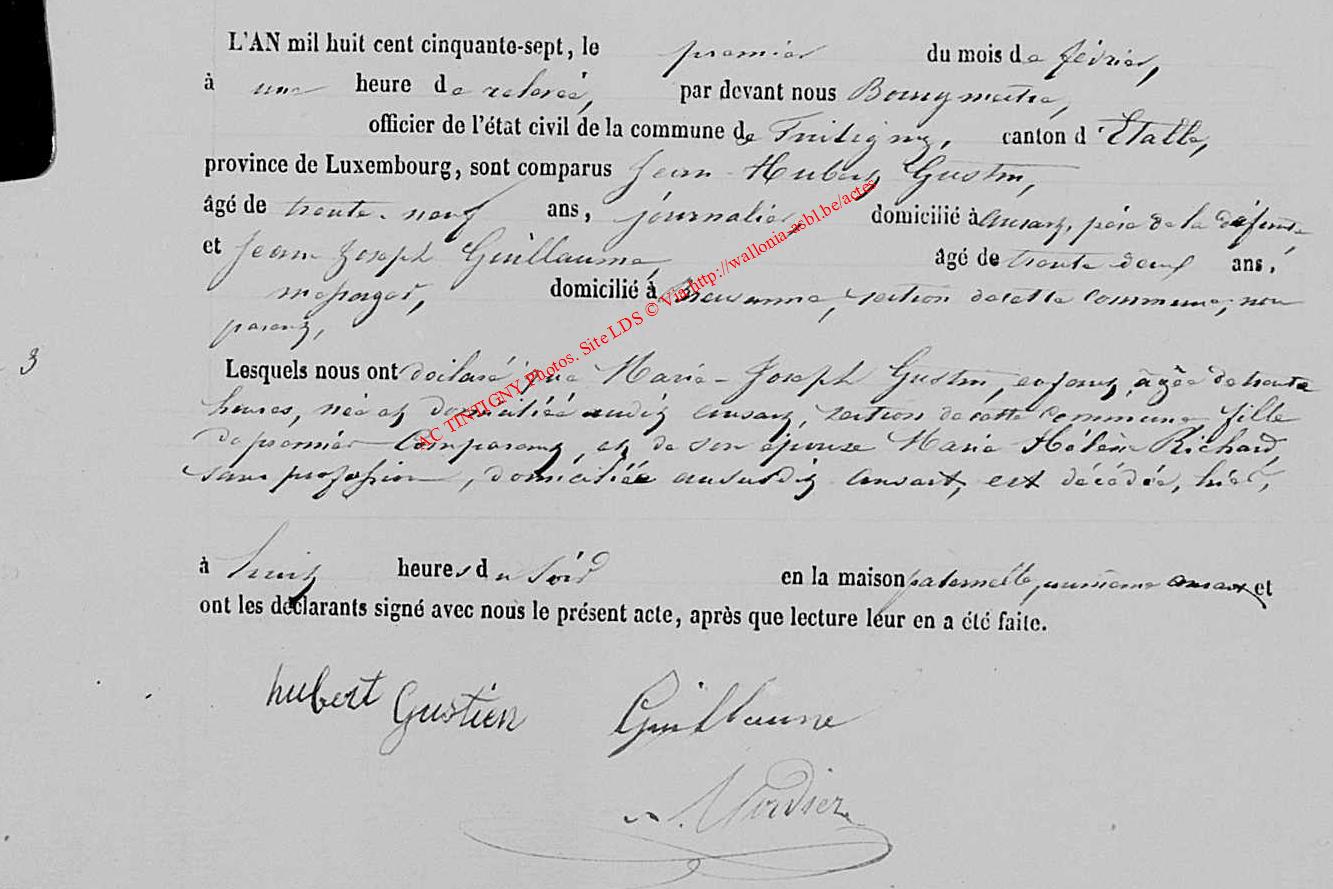 L'AN mil huit cent cinquante-sept, le premier du mois de février,
à une heure de relevée, par devant nous Bourgmestre,
officier de l'état civil de la commune de Tintigny, canton d'Etalle,
province de Luxembourg, sont comparus Jean Hubert Gustin,
âgé de trente-neuf ans, journalier, domicilié à ansart, père de la défunte
et Jean Joseph Guillaume, âgé de trente deux ans,
messager, domicilié à section de cette commune, non
parent,
3
Lesquels nous ont déclaré que Marie-Joseph Gustin, enfant, âgée de trente
heures, née et domiciliée audit ansart, section de cette commune fille
de premier Comparant, et de son épouse Marie Hélène Richard,
sans profession, domiciliée aususdit ansart, est décédée, hier,
à huit heures du soir en la maison paternelle, ansart et
ont les déclarants signé avec nous le présent acte, après que lecture leur en a été faite.
hubert Gustien Guillaume
AC TINTIGNY Photos. Site LDS © Via http://wallonia-asbl.be/actes